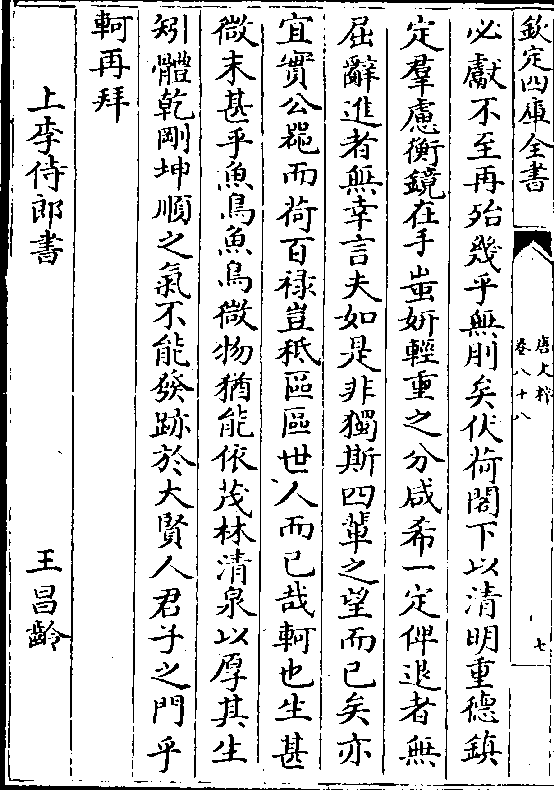 欽定四庫全書
唐文粹
卷八十八
七
必獻不至再殆幾乎無刖矣伏荷閣下以清明重德鎮
定羣慮衡鏡在手蚩妍輕重之分咸希一定俾退者無
屈辭進者無幸言夫如是非獨斯四輩之望而已矣亦
宜實公器而荷百禄豈秪區區世人而已哉軻也生甚
微末甚乎魚鳥魚鳥微物猶能依茂林清泉以厚其生
矧體乾剛坤順之氣不能發跡於大賢人君子之門乎
軻再拜
上李侍郎書 王昌齡